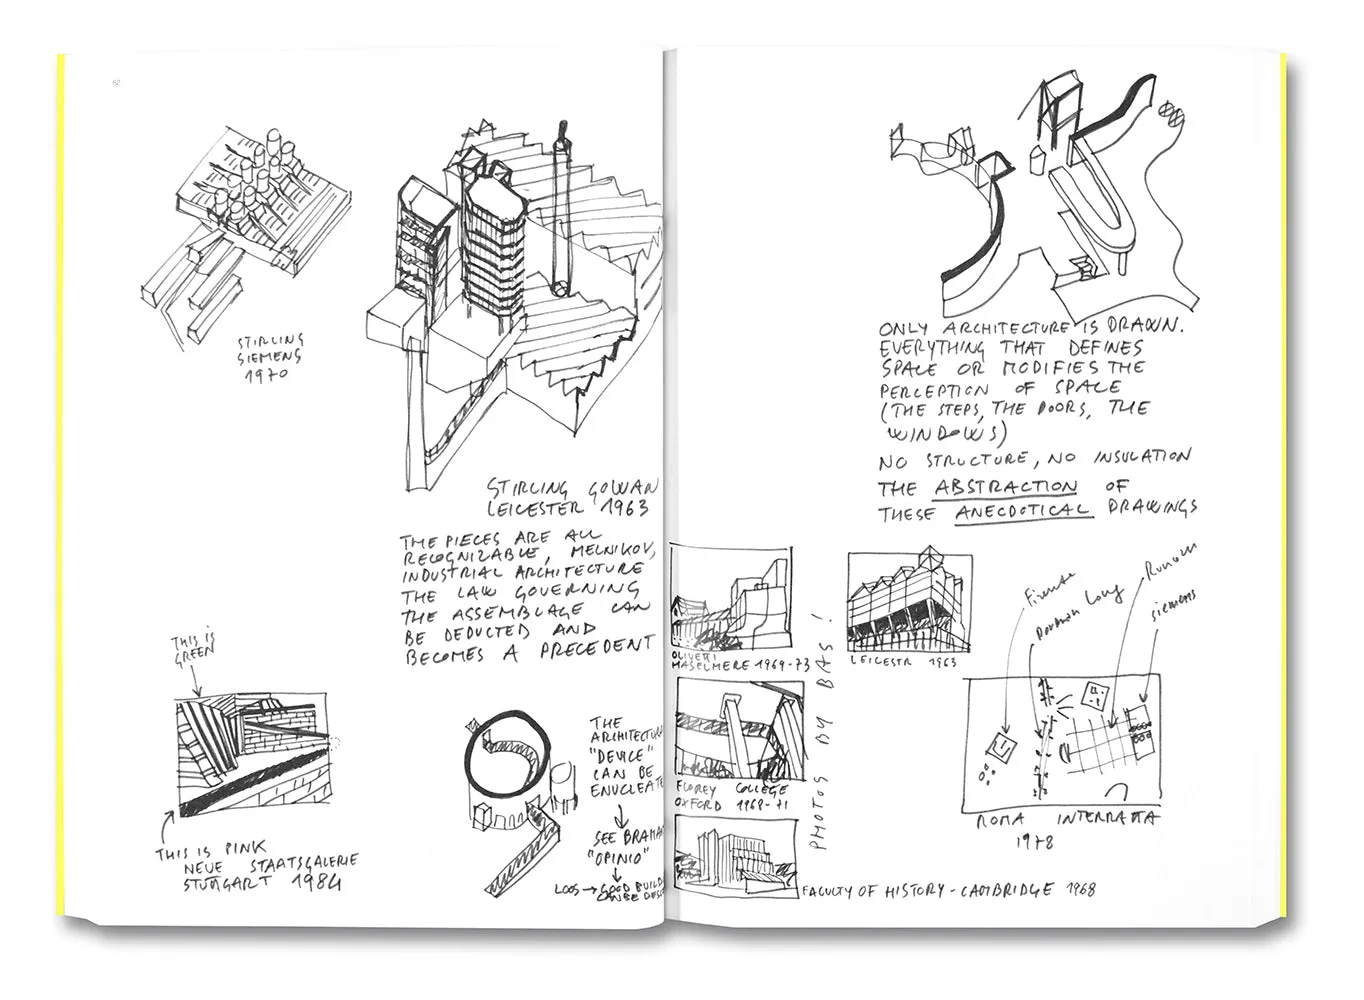 62
STIRLING
SIEMENS
1970
STIRLING GOWAN
LEICESTER 1963
THE PIECES ARE ALL
RECOGNIZABLE, MELNIKOV,
INDUSTRIAL ARCHITECTURE
THE LAW GOVERNING
THE ASSEMBLAGE CAN
BE DEDUCTED AND
BECOMES A PRECEDENT
THIS IS
GREEN
THIS IS PINK
NEUE STAATSGALERIE
STUTTGART 1984
THE
ARCHITECTURE
"DEVICE"
CAN BE
ENUCLEATE
SEE BRAMAN
"OPINIO"
LOOS → GOOD BUILD
CAN BE DES
ONLY ARCHITECTURE IS DRAWN.
EVERYTHING THAT DEFINES
SPACE OR MODIFIES THE
PERCEPTION OF SPACE
(THE STEPS, THE DOORS, THE
WINDOWS)
NO STRUCTURE, NO INSULATION
THE ABSTRACTION OF
THESE ANECDOTICAL DRAWINGS
OLIVETTI
HASELMERE 1969-73
LEICESTR 1963
FLOREY COLLEGE
OXFORD 1968-71
PHOTOS BY BAS!
FACULTY OF HISTORY - CAMBRIDGE 1968
Firenze
Dorman Long
Runcorn
Siemens
ROMA INTERROTTA
1978